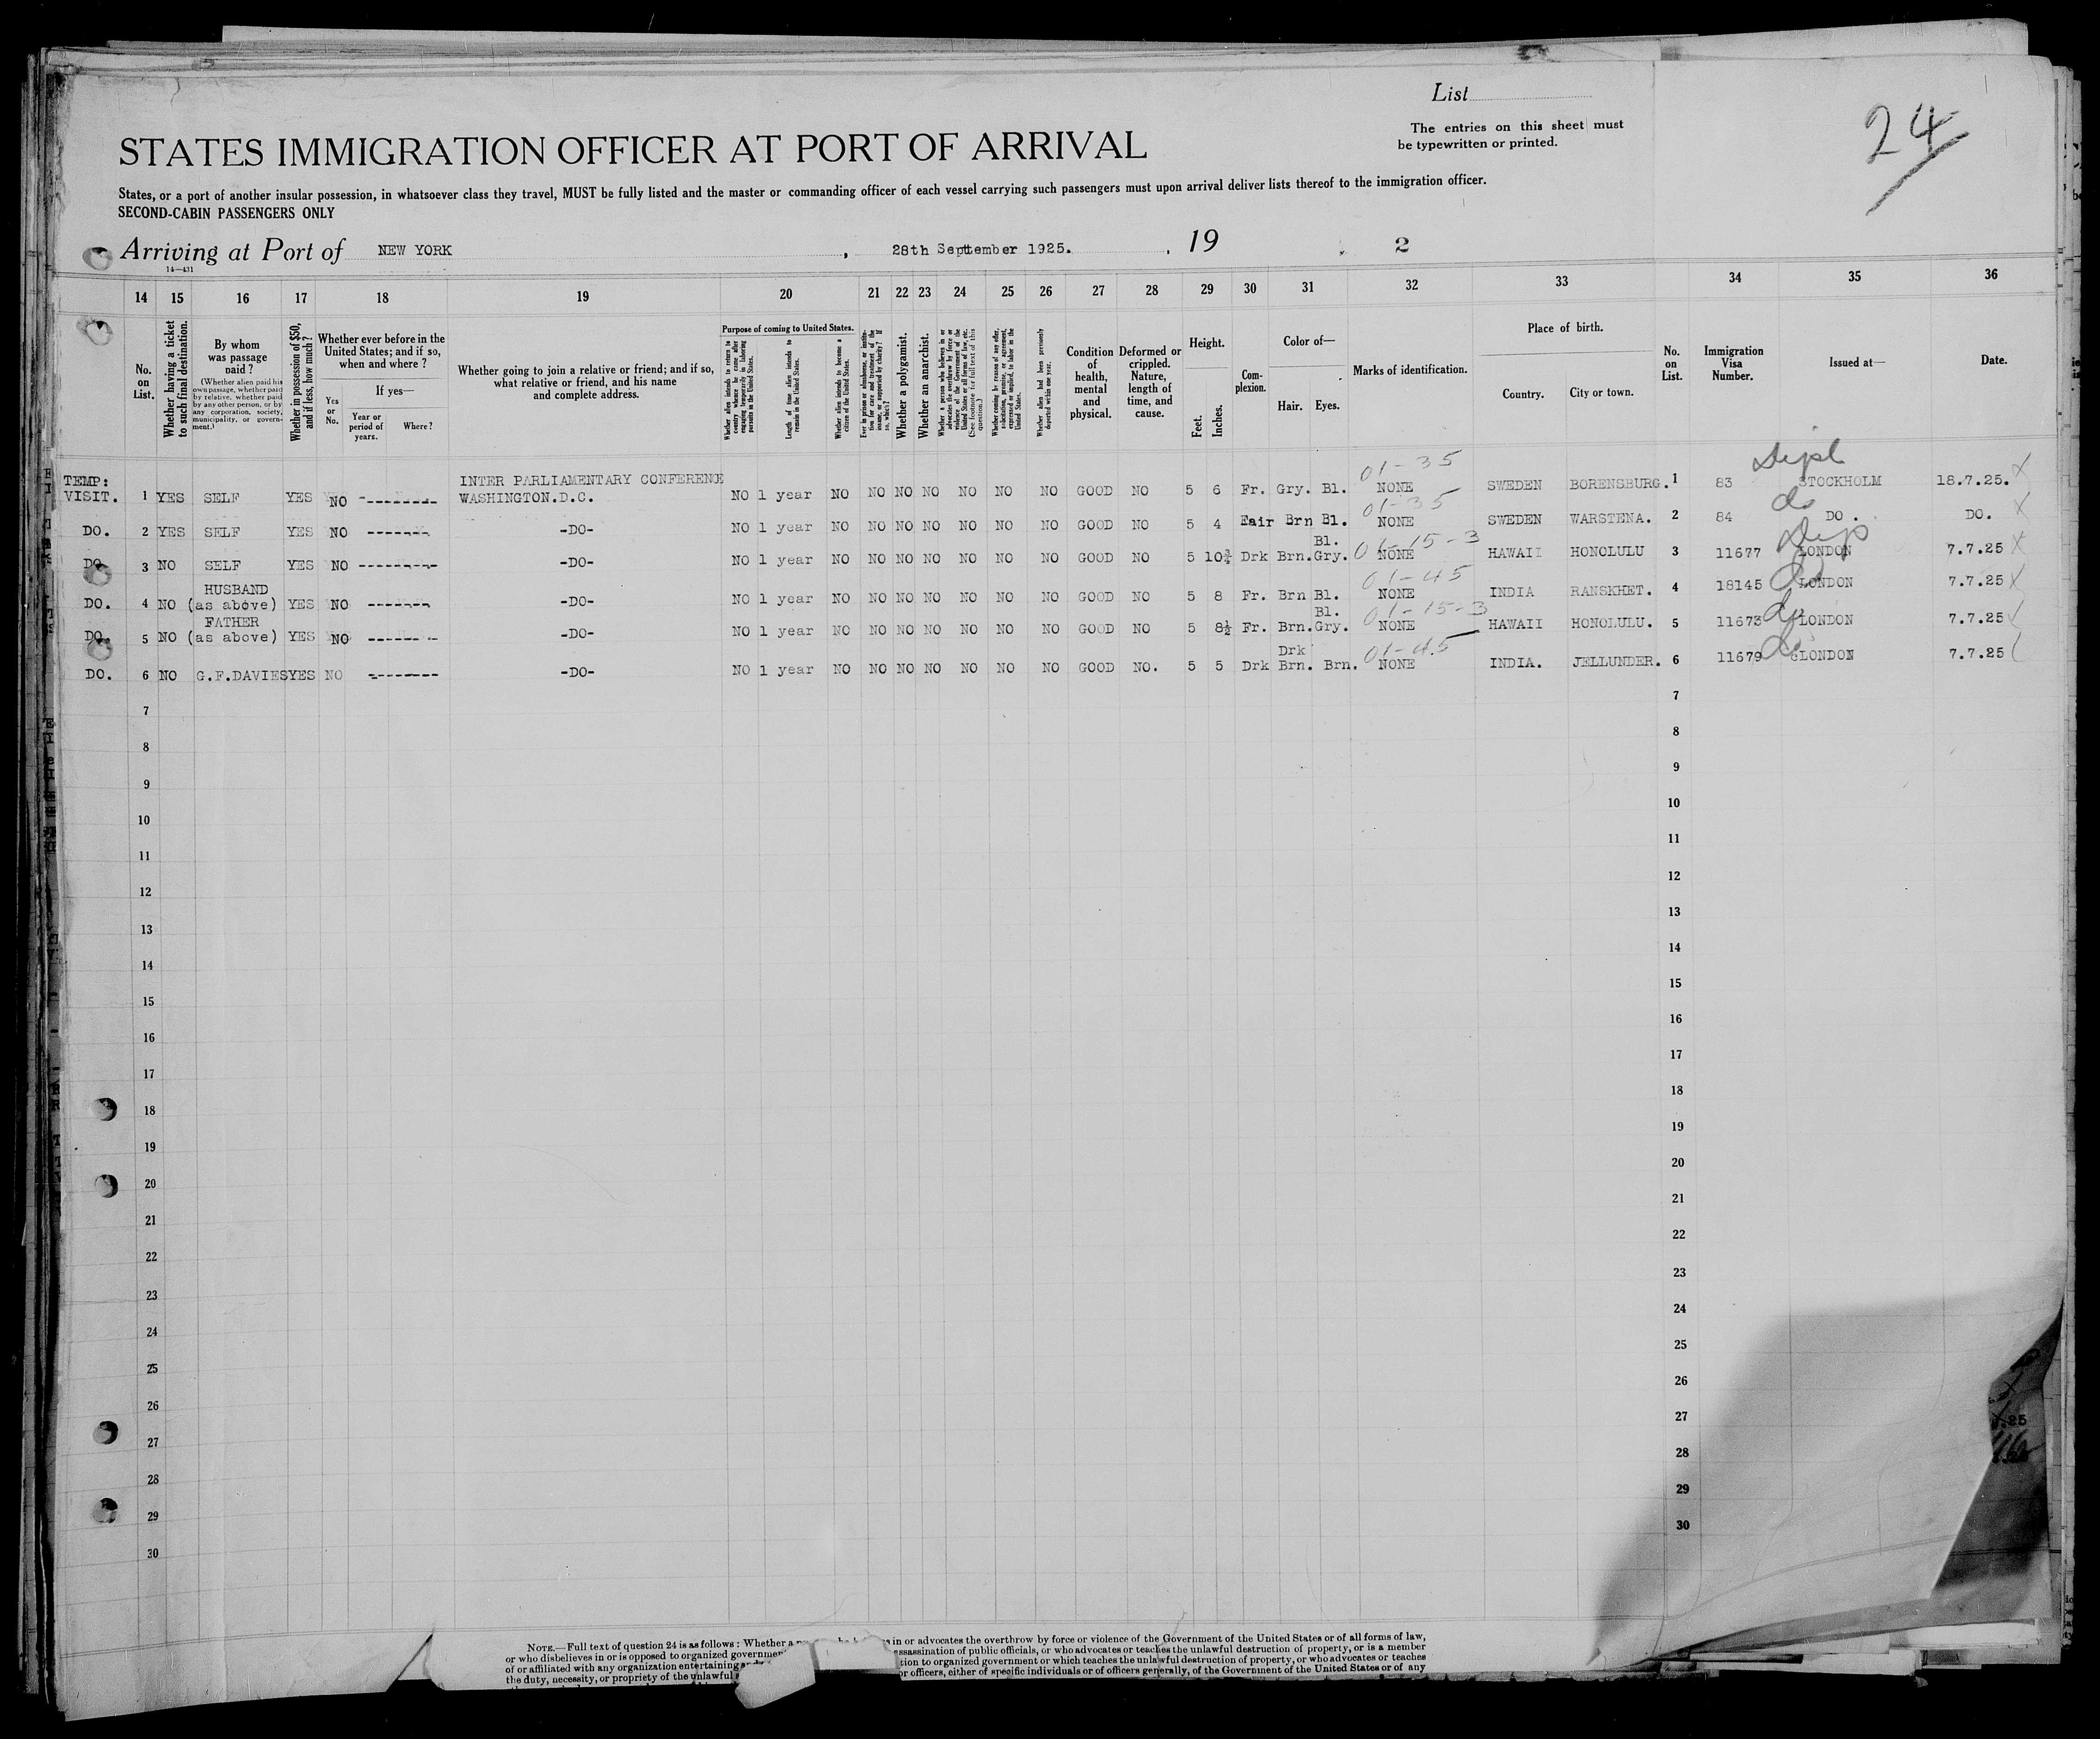 List
24
The entries on this sheet must
be typewritten or printed.
STATES IMMIGRATION OFFICER AT PORT OF ARRIVAL
States, or a port of another insular possession, in whatsoever class they travel, MUST be fully listed and the master or commanding officer of each vessel carrying such passengers must upon arrival deliver lists thereof to the immigration officer.
SECOND-CABIN PASSENGERS ONLY
Arriving at Port of NEW YORK, 28th September 1925., 19 2
14—431
14 15 16 17 18 19 20 21 22 23 24 25 26 27 28 29 30 31 32 33 34 35 36
No. on List.
Whether having a ticket to such final destination.
By whom was passage paid?
(Whether alien paid his own passage, whether paid by relative, whether paid by any other person, or by any corporation, society, municipality, or government.)
Whether in possession of $50, and if less, how much?
Whether ever before in the United States; and if so, when and where?
Yes or No.
If yes—
Year or period of years.
Where?
Whether going to join a relative or friend; and if so, what relative or friend, and his name and complete address.
Purpose of coming to United States.
Whether alien intends to return to country whence he came after engaging temporarily in laboring pursuits in the United States.
Length of time alien intends to remain in the United States.
Whether alien intends to become a citizen of the United States.
Ever in prison or almshouse, or institution for care and treatment of the insane, or supported by charity? If so, which?
Whether a polygamist.
Whether an anarchist.
Whether a person who believes in or advocates the overthrow by force or violence of the Government of the United States or all forms of law, etc. (See footnote for full text of this question.)
Whether coming by reason of any offer, solicitation, promise, or agreement, expressed or implied, to labor in the United States.
Whether alien had been previously deported within one year.
Condition of health, mental and physical.
Deformed or crippled. Nature, length of time, and cause.
Height.
Feet.
Inches.
Complexion.
Color of—
Hair.
Eyes.
Marks of identification.
Place of birth.
Country.
City or town.
No. on List.
Immigration Visa Number.
Issued at—
Date.
TEMP: VISIT. 1 YES SELF YES NO -------- INTER PARLIAMENTARY CONFERENCE WASHINGTON.D.C. NO 1 year NO NO NO NO NO NO NO GOOD NO 5 6 Fr. Gry. Bl. 01-35 NONE SWEDEN BORENSBURG. 1 83 Dipl STOCKHOLM 18.7.25. X
DO. 2 YES SELF YES NO ------- -DO- NO 1 year NO NO NO NO NO NO NO GOOD NO 5 4 Fair Brn Bl. 01-35 NONE SWEDEN WARSTENA. 2 84 do DO. DO. X
DO. 3 NO SELF YES NO -------- -DO- NO 1 year NO NO NO NO NO NO NO GOOD NO 5 10¾ Drk Brn. Bl. Gry. 01-15-3 NONE HAWAII HONOLULU 3 11677 Dip LONDON 7.7.25 X
DO. 4 NO HUSBAND (as above) YES NO ------- -DO- NO 1 year NO NO NO NO NO NO NO GOOD NO 5 8 Fr. Brn Bl. 01-45 NONE INDIA RANSKHET. 4 18145 do LONDON 7.7.25 X
DO. 5 NO FATHER (as above) YES NO -------- -DO- NO 1 year NO NO NO NO NO NO NO GOOD NO 5 8½ Fr. Brn. Bl. Gry. 01-15-3 NONE HAWAII HONOLULU. 5 11673 do LONDON 7.7.25
DO. 6 NO G.F.DAVIES YES NO -------- -DO- NO 1 year NO NO NO NO NO NO NO GOOD NO. 5 5 Drk Drk Brn. Brn. 01-45 NONE INDIA. JELLUNDER. 6 11679 do LONDON 7.7.25
7 7
8 8
9 9
10 10
11 11
12 12
13 13
14 14
15 15
16 16
17 17
18 18
19 19
20 20
21 21
22 22
23 23
24 24
25 25
26 26
27 27
28 28
29 29
30 30
NOTE.—Full text of question 24 is as follows: Whether a in or advocates the overthrow by force or violence of the Government of the United States or of all forms of law,
or who disbelieves in or is opposed to organized governmen ssassination of public officials, or who advocates or teaches the unlawful destruction of property, or is a member
of or affiliated with any organization entertaining tion to organized government or which teaches the unlawful destruction of property, or who advocates or teaches
the duty, necessity, or propriety of the unlawful or officers, either of specific individuals or of officers generally, of the Government of the United States or of any